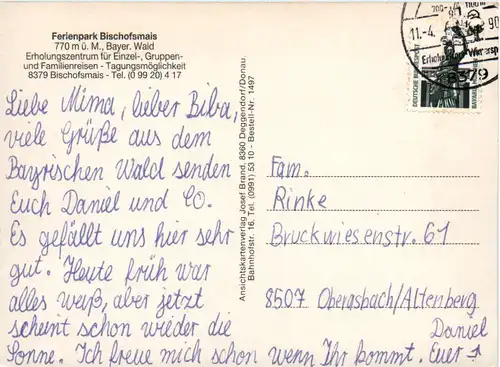 Ferienpark Bischofsmais
770 m ü. M., Bayer. Wald
Erholungszentrum für Einzel-, Gruppen-
und Familienreisen - Tagungsmöglichkeit
8379 Bischofsmais - Tel. (0 99 20) 4 17
Liebe Mima, lieber Biba,
viele Grüße aus dem
Bayrischen Wald senden
Euch Daniel und CO.
Es gefällt uns hier sehr
gut. Heute früh war
alles weiß, aber jetzt
scheint schon wieder die
Sonne. Ich freue mich schon wenn Ihr kommt. Euer →
Daniel
Ansichtskartenverlag Josef Brand, 8360 Deggendorf/Donau.
Bahnhofstr. 16, Tel. (0991) 55 10 - Bestell-Nr. 1497
Fam.
Rinke
Bruckwiesenstr. 61
8507 Oberasbach/Altenberg
11.-4.
90
8379
DEUTSCHE BUNDESPOST